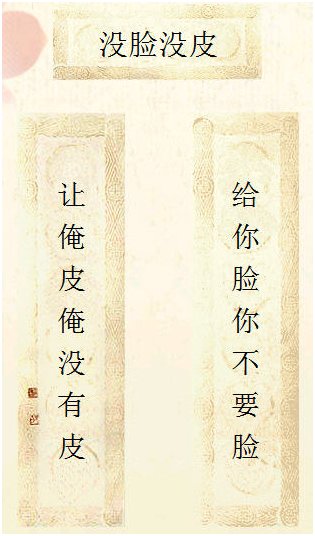 没脸没皮
给你脸你不要脸
让俺皮俺没有皮